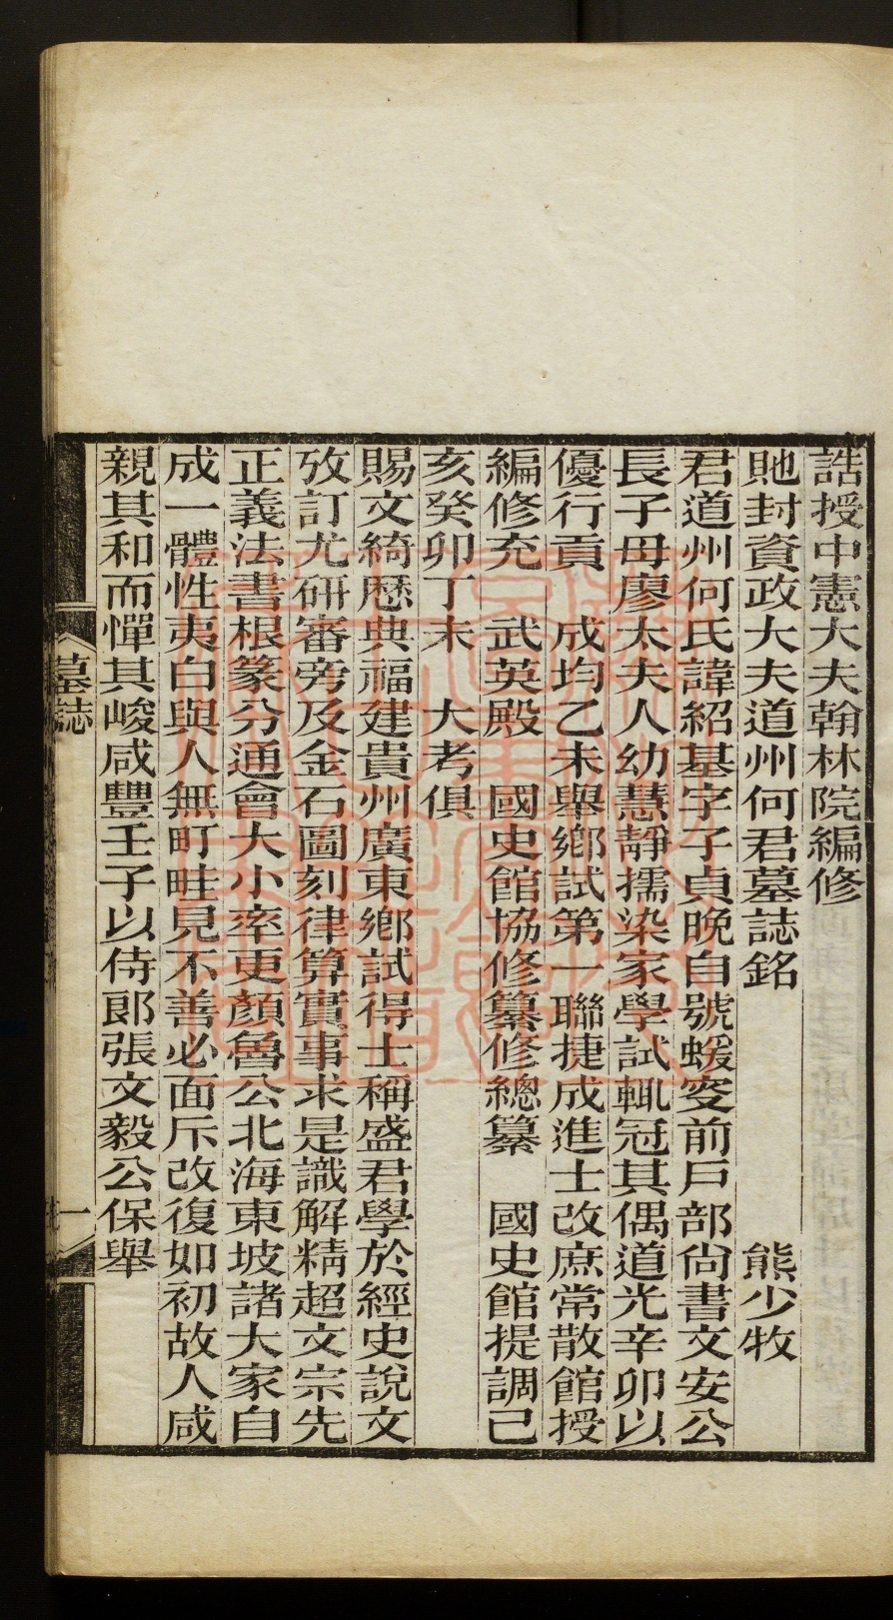 誥授中憲大夫翰林院編修
貤封資政大夫道州何君墓誌銘　熊少牧
君道州何氏諱紹基字子貞晚自號蝯叟前戶部尙書文安公
長子母廖太夫人幼慧靜擩染家學試輒冠其偶道光辛卯以
優行貢　成均乙未舉鄉試第一聯捷成進士改庶常散館授
編修充　武英殿　國史館協修纂修總纂　國史館提調己
亥癸卯丁未　大考俱
賜文綺歷典福建貴州廣東鄉試得士稱盛君學於經史說文
攷訂尤研審旁及金石圖刻律算實事求是識解精超文宗先
正義法書根篆分通會大小率更顏魯公北海東坡諸大家自
成一體性夷白與人無町畦見不善必面斥改復如初故人咸
親其和而憚其峻咸豐壬子以侍郎張文毅公保舉
墓誌
一